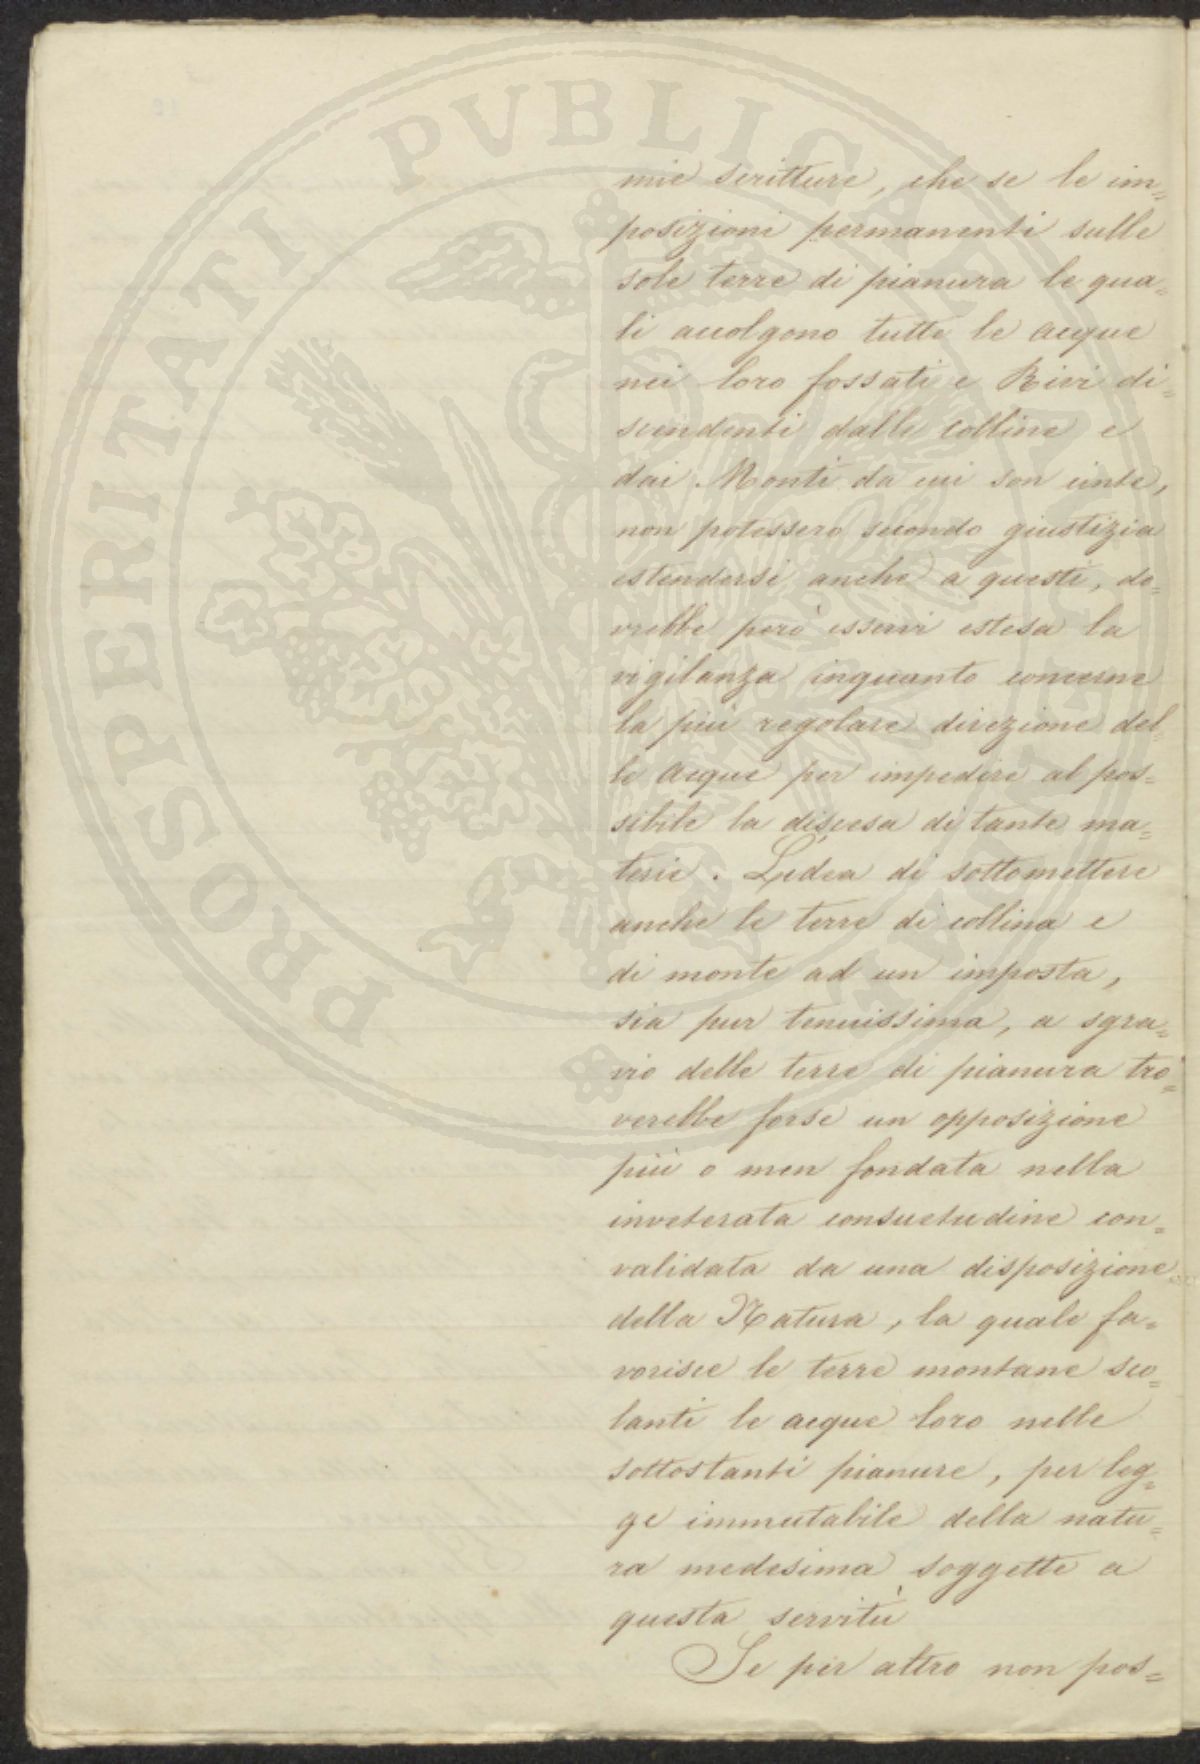 PROSPERITATI PUBLICAE AUGENDAE
mie scritture, che se le im=
posizioni permanenti sulle
sole terre di pianura le qua=
li accolgono tutte le acque
nei loro fossati e Rivi di=
scendenti dalle colline e
dai Monti da cui son cinte,
non potessero secondo giustizia
estendersi anche a questi, do=
vrebbe però esservi estesa la
vigilanza inquanto concerne
la più regolare direzione del=
le acque per impedire al pos=
sibile la discesa di tante ma=
terie. L'idea di sottomettere
anche le terre di collina e
di monte ad un imposta,
sia pur tenuissima, a sgra=
vio delle terre di pianura tro=
verebbe forse un opposizione
più o men fondata nella
inveterata consuetudine con=
validata da una disposizione
della Natura, la quale fa=
vorisce le terre montane sco=
lanti le acque loro nelle
sottostanti pianure, per leg=
ge immutabile della natu=
ra medesima soggette a
questa servitù
Se per altro non pos=